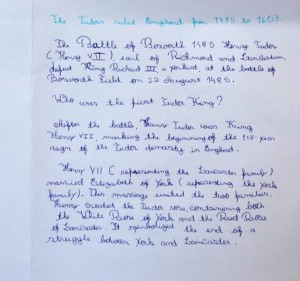 The Tudors ruled England from 1485 to 1603.
The Battle of Bosworth 1485 Henry Tudor
(Henry VII) earl of Richmond and Lancastrian,
defeat King Richard III, a yorkist, at the battle of
Bosworth Field on 22 August 1485.
Who was the first Tudor King?
After the battle, Henry Tudor was King
Henry VII, marking the beginning of the 118-year
reign of the Tudor dynasty in England.
Henry VII (representing the Lancaster family)
married Elizabeth of York (representing the York
family). This marriage united the two families.
Henry created the Tudor rose, containing both
the White Rose of York and the Red Rose
of Lancaster. It symbolized the end of a
struggle between York and Lancaster.